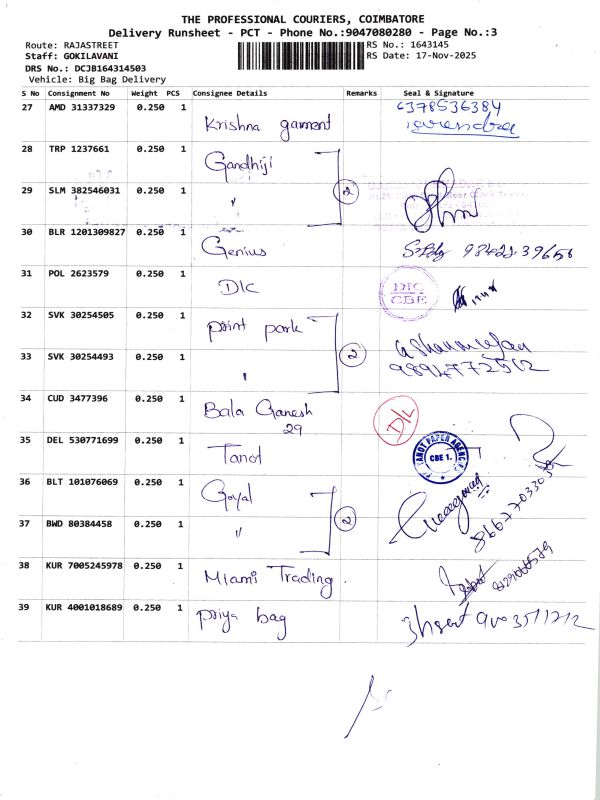 THE PROFESSIONAL COURIERS, COIMBATORE
Delivery Runsheet - PCT - Phone No.:9047080280 - Page No.:3
Route: RAJASTREET
RS No.: 1643145
Staff: GOKILAVANI
RS Date: 17-Nov-2025
DRS No.: DCJB164314503
Vehicle: Big Bag Delivery
S No Consignment No Weight PCS Consignee Details Remarks Seal & Signature
27 AMD 31337329 0.250 1 Krishna garment 6378536384
28 TRP 1237661 0.250 1 Gandhiji
29 SLM 382546031 0.250 1 " 2
30 BLR 1201309827 0.250 1 Genius
31 POL 2623579 0.250 1 DIC DIC CBE
32 SVK 30254505 0.250 1 print park
33 SVK 30254493 0.250 1 " 2 9894772512
34 CUD 3477396 0.250 1 Bala Ganesh 29 D/L
35 DEL 530771699 0.250 1 Tanot TANOT PAPER AGENCY CBE 1.
36 BLT 101076069 0.250 1 Goyal
37 BWD 80384458 0.250 1 " 2
38 KUR 7005245978 0.250 1 Miami Trading
39 KUR 4001018689 0.250 1 Priya bag